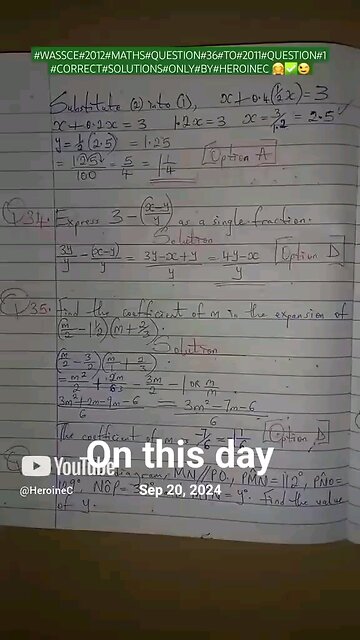 #WASSCE#2012#MATHS#QUESTION#36#TO#2011#QUESTION#1
#CORRECT#SOLUTIONS#ONLY#BY#HEROINEC 🤗✅😉
Substitute (2) into (1), x + 0.4(½x) = 3
x + 0.2x = 3 1.2x = 3 x = 3/1.2 = 2.5
y = ½(2.5) = 1.25
= 125/100 = 5/4 = 1¼ Option A
34. Express 3 - (x-y/y) as a single fraction.
Solution
3y/y - (x-y)/y = 3y-x+y/y = 4y-x/y Option D
35. Find the coefficient of m in the expansion of
(m/2 - 1½)(m + 2/3).
Solution
(m/2 - 3/2)(m/1 + 2/3)
= m²/2 + 2m/6 - 3m/2 - 1 OR
3m²+2m-9m-6/6 = 3m²-7m-6/6
The coefficient of Option D
On this day
YouTube
diagram, MN//PO, PMN = 112°, PNO =
@HeroineC
Sep 20, 2024
NOP = = y°. Find the value
of y.